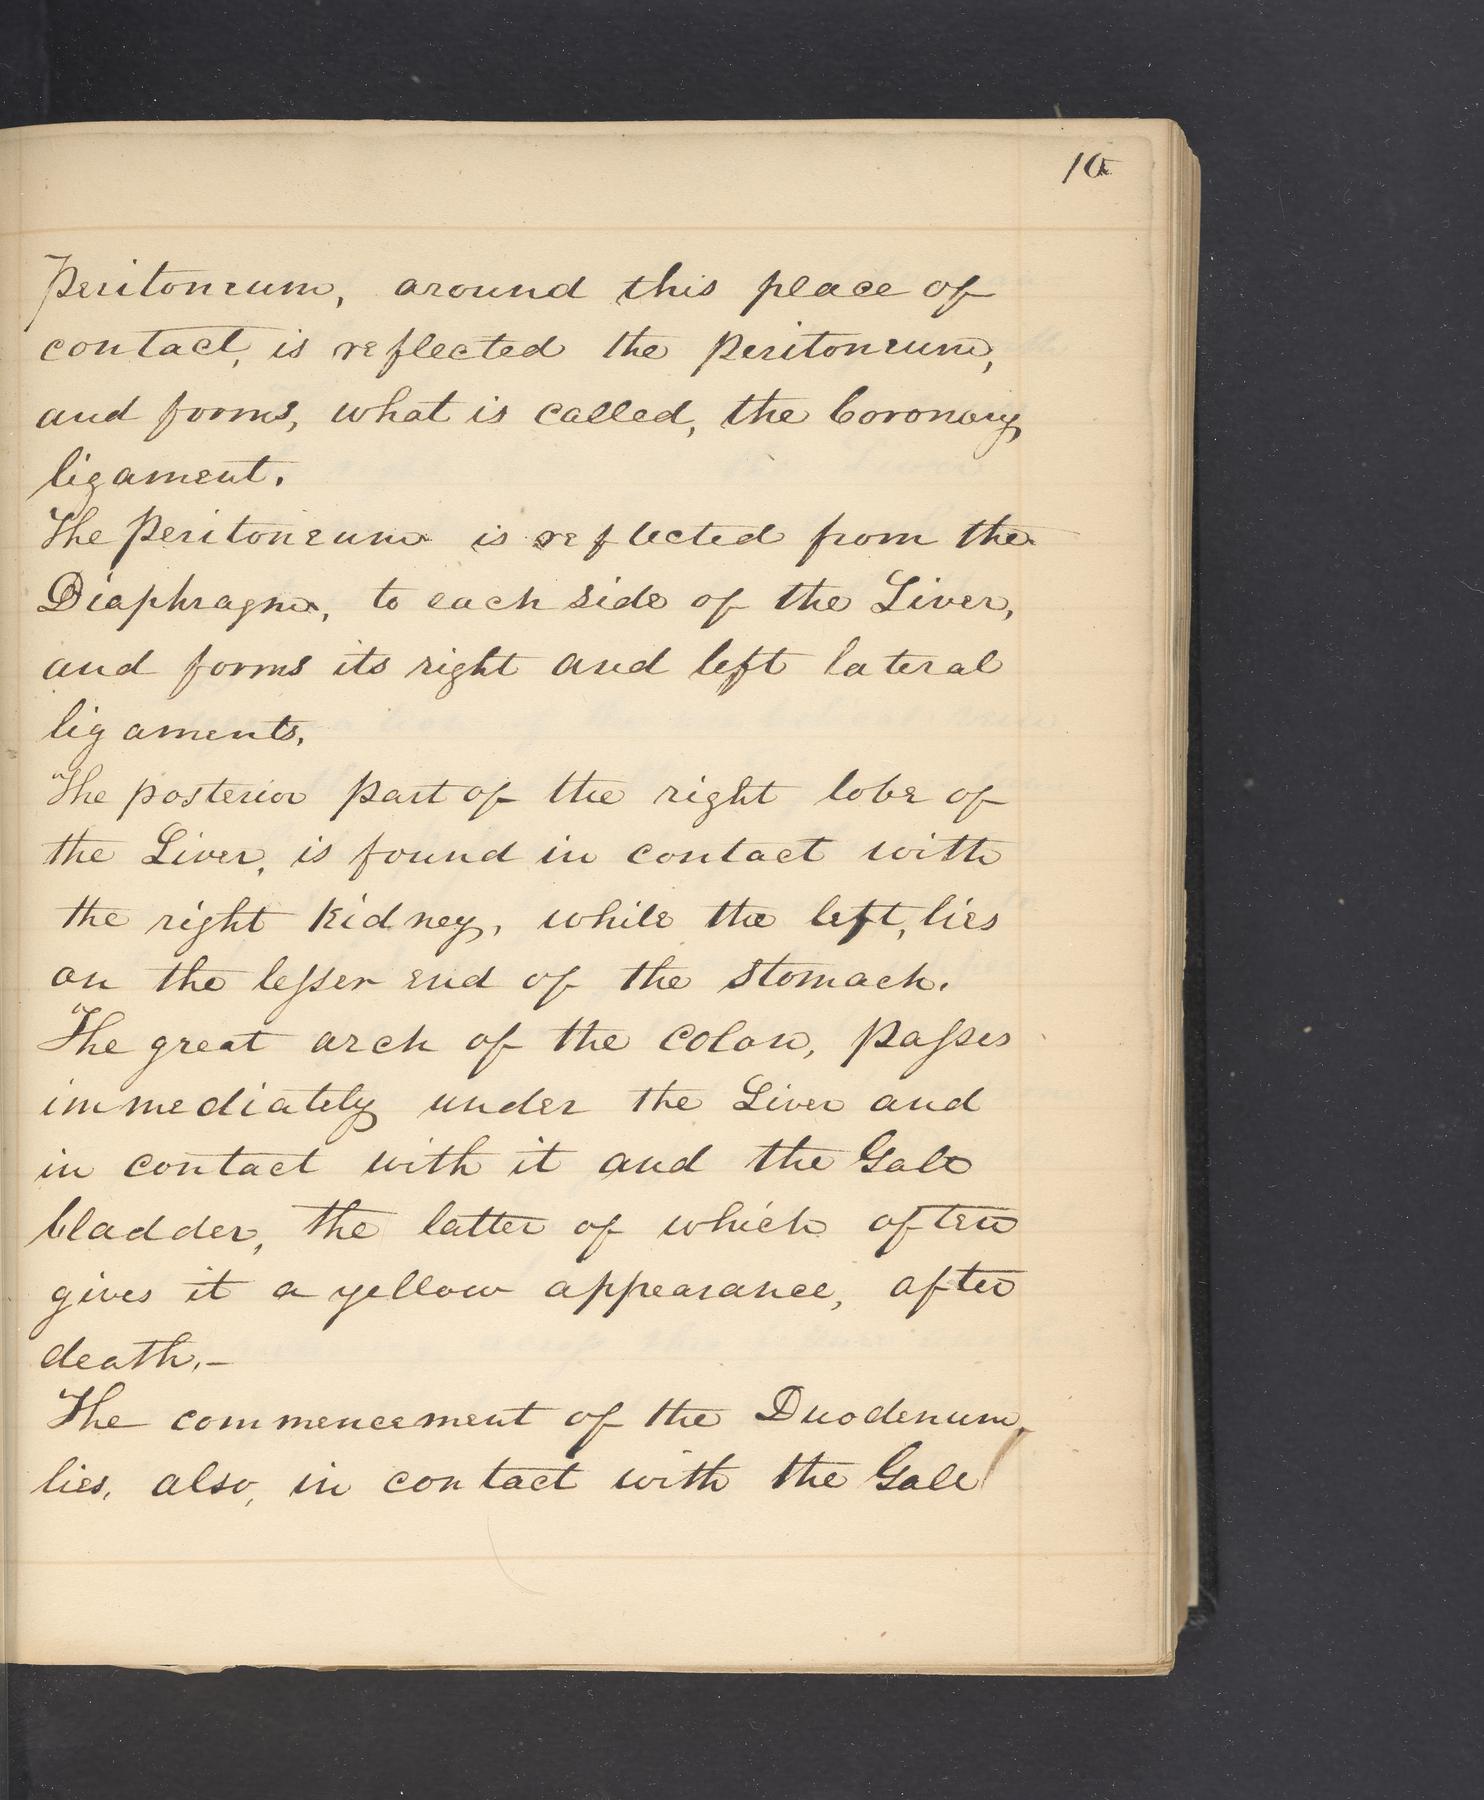 10
Peritoneum, around this place of
contact, is reflected the Peritoneum,
and forms, what is called, the Coronary
ligament.
The Peritoneum is reflected from the
Diaphragm, to each side of the Liver,
and forms its right and left lateral
ligaments.
The posterior part of the right lobe of
the Liver, is found in contact with
the right Kidney, while the left, lies
on the leſser end of the Stomach.
The great arch of the Colon, paſses
immediately under the Liver and
in contact with it and the Gall
bladder, the latter of which often
gives it a yellow appearance, after
death.—
The commencement of the Duodenum,
lies, also, in contact with the Gall